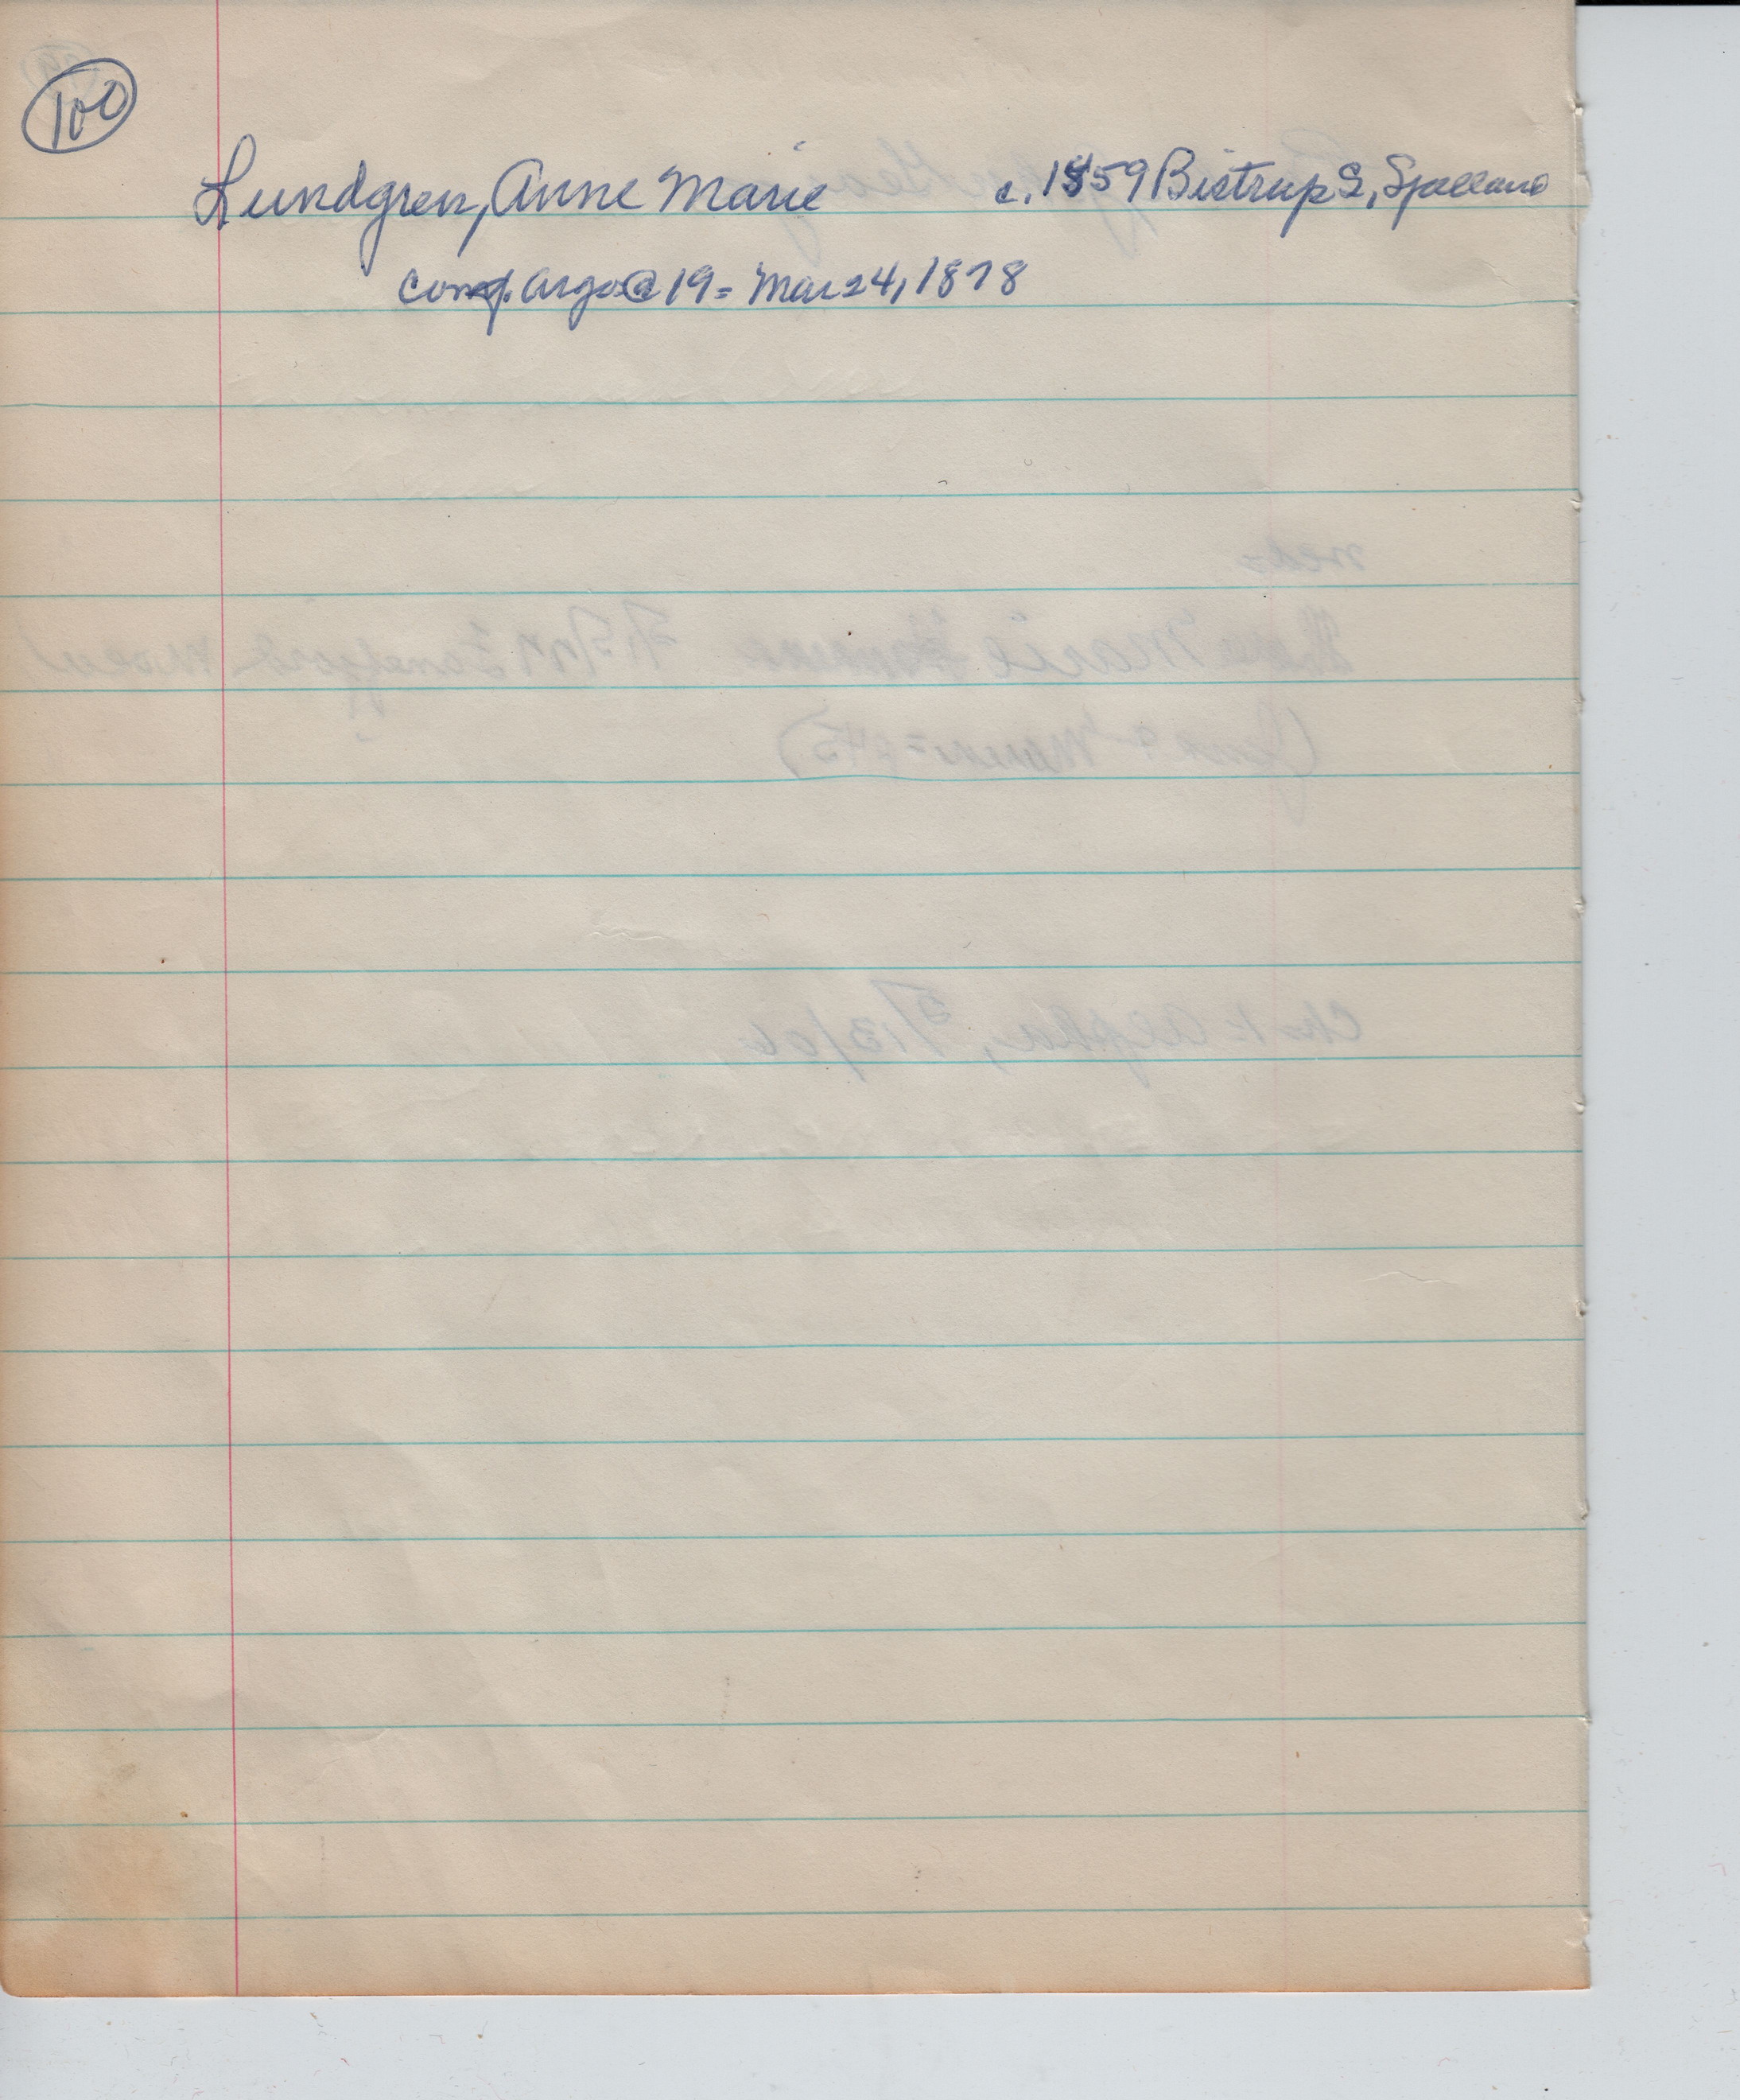 100
Lundgren, Anne Marie c. 1859 Bistrup S, Sjælland
Conf. Argo @ 19 = Mar 24, 1878